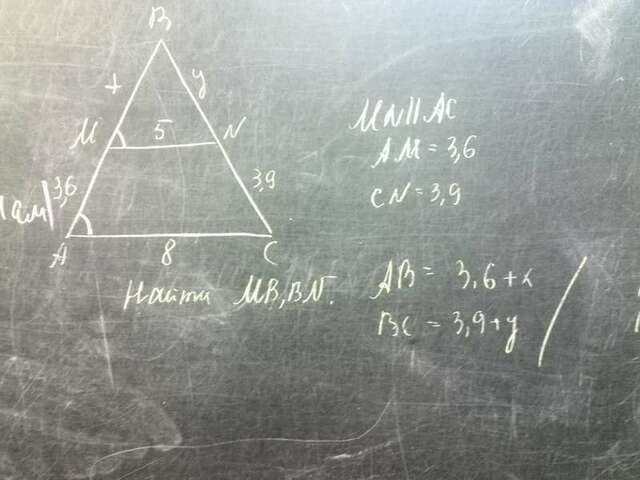 B
x y
M 5 N
3,6 3,9
A 8 C
MN||AC
AM = 3,6
CN = 3,9
Найти MB, BN.
AB = 3,6+x
BC = 3,9+y